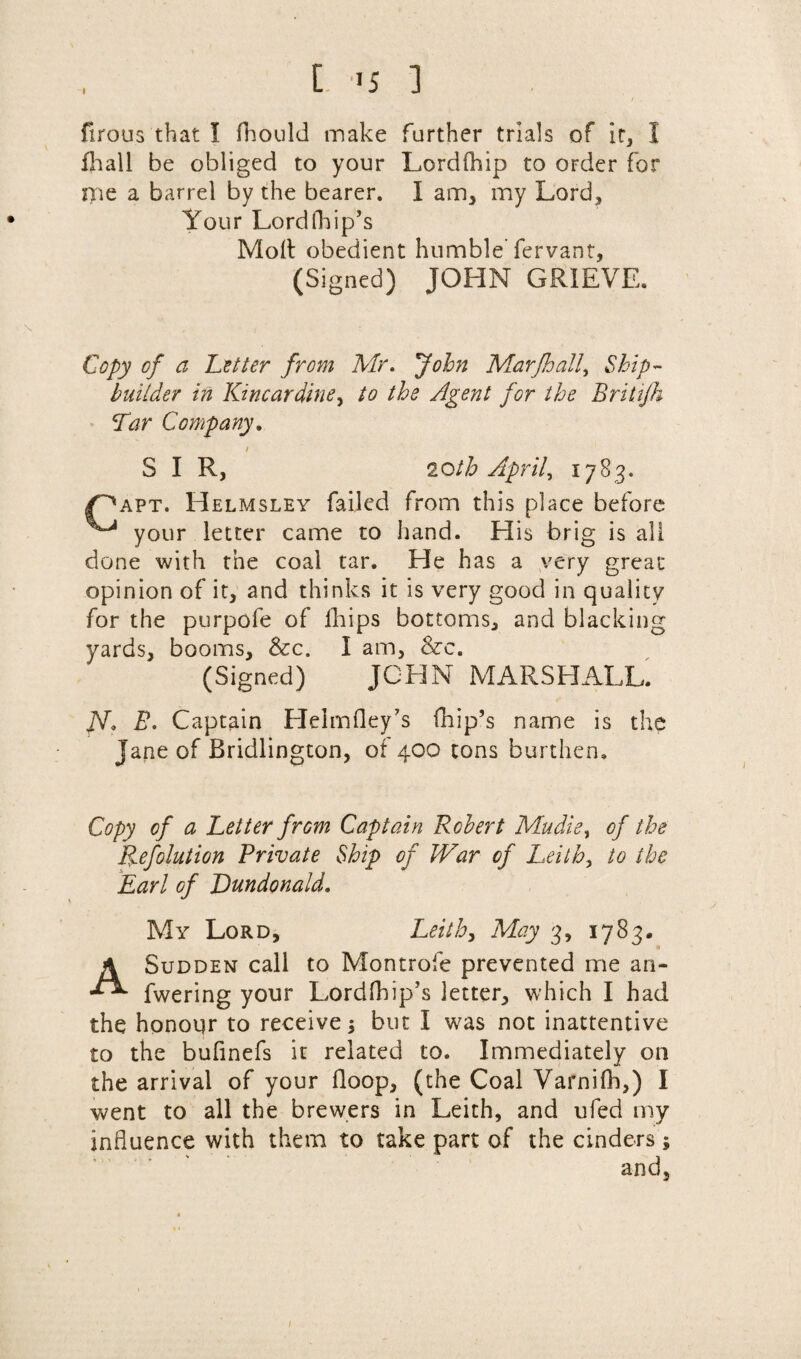 [ 15 ]
ſirous that I ſhould make further trials of it, I
ſhall be obliged to your Lordſhip to order for
me a barrel by the bearer. I am, my Lord,
Your Lordſhip's
Moſt obedient humble ſervant,
(Signed) JOHN GRIEVE.
Copy of a Letter from Mr. John Marſhall, Ship-
builder in Kincardine, to the Agent for the Britiſh
Tar Company.
SIR, 20th April, 1783.
CAPT. HELMSLEY failed from this place before
your letter came to hand. His brig is all
done with the coal tar. He has a very great
opinion of it, and thinks it is very good in quality
for the purpoſe of ſhips bottoms, and blacking
yards, booms, &c. I am, &c.
(Signed) JOHN MARSHALL.
N. B. Captain Helmſley's ſhip's name is the
Jane of Bridlington, of 400 tons burthen.
Copy of a Letter from Captain Robert Mudie, of the
Reſolution Private Ship of War of Leith, to the
Earl of Dundonald.
MY LORD, Leith, May 3, 1783.
A SUDDEN call to Montroſe prevented me an-
ſwering your Lordſhip's letter, which I had
the honour to receive; but I was not inattentive
to the buſineſs it related to. Immediately on
the arrival of your ſloop, (the Coal Varniſh,) I
went to all the brewers in Leith, and uſed my
influence with them to take part of the cinders;
and,